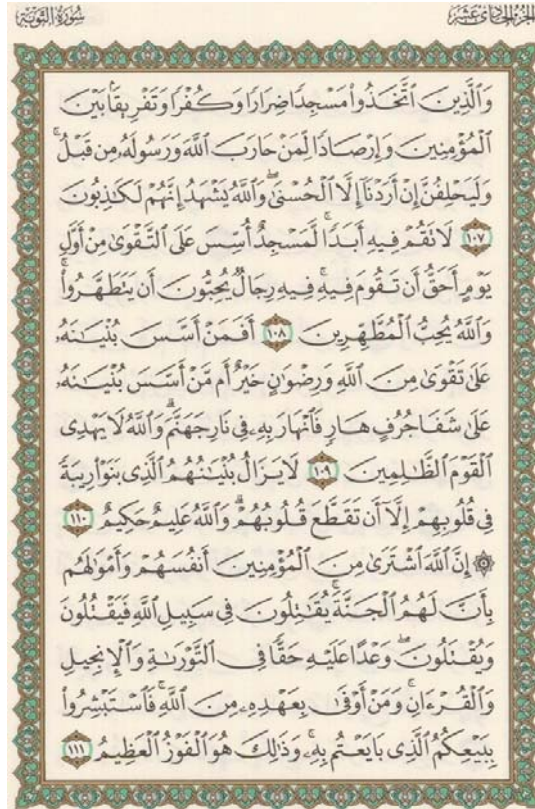 الجزء الحادي عشر سورة التوبة
وَٱلَّذِينَ ٱتَّخَذُوا۟ مَسْجِدًا ضِرَارًا وَكُفْرًا وَتَفْرِيقًۢا بَيْنَ
ٱلْمُؤْمِنِينَ وَإِرْصَادًا لِّمَنْ حَارَبَ ٱللَّهَ وَرَسُولَهُۥ مِن قَبْلُ ۚ
وَلَيَحْلِفُنَّ إِنْ أَرَدْنَآ إِلَّا ٱلْحُسْنَىٰ ۖ وَٱللَّهُ يَشْهَدُ إِنَّهُمْ لَكَـٰذِبُونَ
١٠٧ لَا تَقُمْ فِيهِ أَبَدًا ۚ لَّمَسْجِدٌ أُسِّسَ عَلَى ٱلتَّقْوَىٰ مِنْ أَوَّلِ
يَوْمٍ أَحَقُّ أَن تَقُومَ فِيهِ ۚ فِيهِ رِجَالٌ يُحِبُّونَ أَن يَتَطَهَّرُوا۟ ۚ
وَٱللَّهُ يُحِبُّ ٱلْمُطَّهِّرِينَ ١٠٨ أَفَمَنْ أَسَّسَ بُنْيَـٰنَهُۥ
عَلَىٰ تَقْوَىٰ مِنَ ٱللَّهِ وَرِضْوَٰنٍ خَيْرٌ أَم مَّنْ أَسَّسَ بُنْيَـٰنَهُۥ
عَلَىٰ شَفَا جُرُفٍ هَارٍ فَٱنْهَارَ بِهِۦ فِى نَارِ جَهَنَّمَ ۗ وَٱللَّهُ لَا يَهْدِى
ٱلْقَوْمَ ٱلظَّـٰلِمِينَ ١٠٩ لَا يَزَالُ بُنْيَـٰنُهُمُ ٱلَّذِى بَنَوْا۟ رِيبَةً
فِى قُلُوبِهِمْ إِلَّآ أَن تَقَطَّعَ قُلُوبُهُمْ ۗ وَٱللَّهُ عَلِيمٌ حَكِيمٌ ١١٠
۞ إِنَّ ٱللَّهَ ٱشْتَرَىٰ مِنَ ٱلْمُؤْمِنِينَ أَنفُسَهُمْ وَأَمْوَٰلَهُم
بِأَنَّ لَهُمُ ٱلْجَنَّةَ ۚ يُقَـٰتِلُونَ فِى سَبِيلِ ٱللَّهِ فَيَقْتُلُونَ
وَيُقْتَلُونَ ۖ وَعْدًا عَلَيْهِ حَقًّا فِى ٱلتَّوْرَىٰةِ وَٱلْإِنجِيلِ
وَٱلْقُرْءَانِ ۚ وَمَنْ أَوْفَىٰ بِعَهْدِهِۦ مِنَ ٱللَّهِ ۚ فَٱسْتَبْشِرُوا۟
بِبَيْعِكُمُ ٱلَّذِى بَايَعْتُم بِهِۦ ۚ وَذَٰلِكَ هُوَ ٱلْفَوْزُ ٱلْعَظِيمُ ١١١